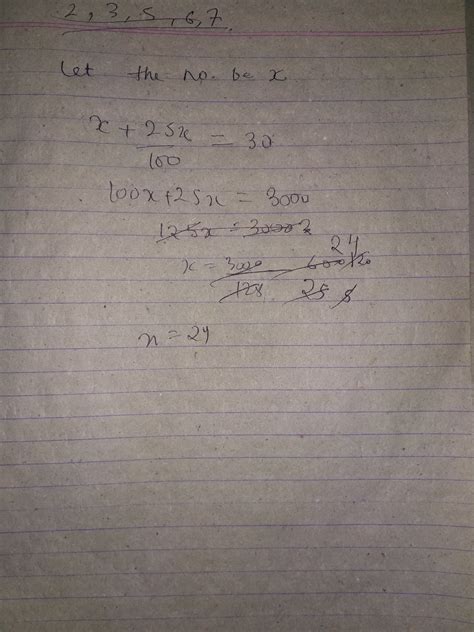 2, 3, 5, 6, 7
Let the no. be x
x + 25x/100 = 30
100x + 25x = 3000
125x = 3000
x = 3000/125 600 120 24 / 25 5
x = 24